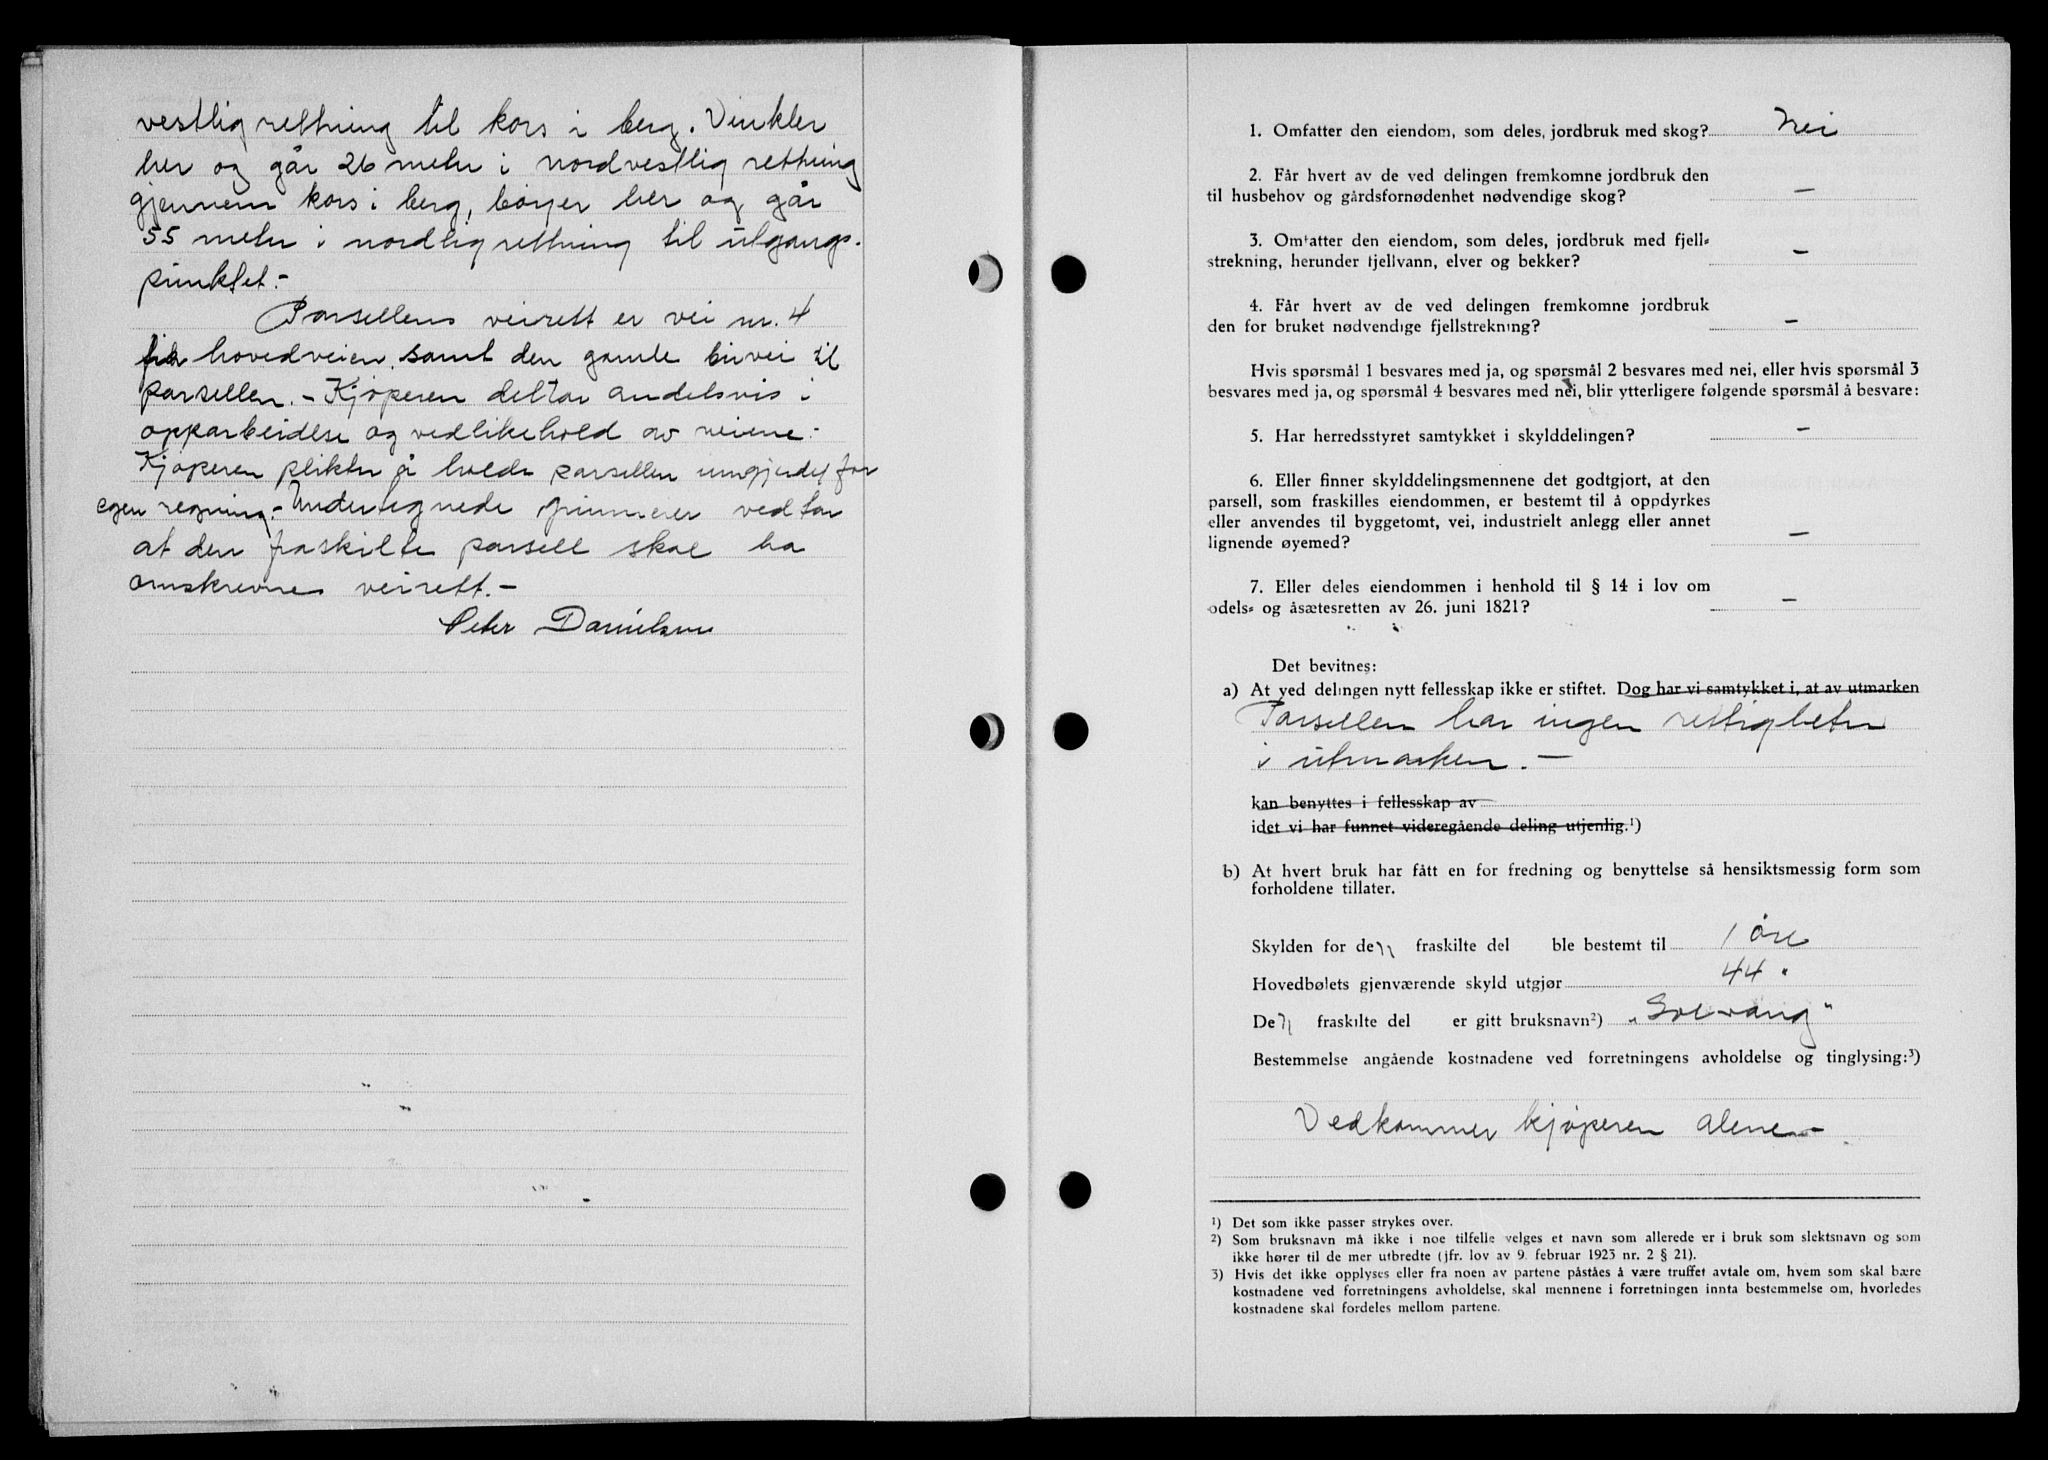 vestlig rettning til kors i berg. Vinkler
her og går 26 meter i nordvestlig rettning
gjennem kors i berg, bøyer her og går
55 meter i nordlig rettning til utgangs-
punktet.-
Parsellens veirett er vei nr. 4
fra hovedveien samt den gamle bivei til
parsellen. - Kjøperen deltar andelsvis i
opparbeidelse og vedlikehold av veiene.-
Kjøperen plikter å holde parsellen inngjerdet for
egen regning.- Undertegnede grunneier vedtar
at den fraskilte parsell skal ha
omskrevne veirett.-
Peter Danielsen
1. Omfatter den eiendom, som deles, jordbruk med skog? Nei
2. Får hvert av de ved delingen fremkomne jordbruk den
til husbehov og gårdsfornødenhet nødvendige skog? —
3. Omfatter den eiendom, som deles, jordbruk med fjell-
strekning, herunder fjellvann, elver og bekker? —
4. Får hvert av de ved delingen fremkomne jordbruk
den for bruket nødvendige fjellstrekning? —
Hvis spørsmål 1 besvares med ja, og spørsmål 2 besvares med nei, eller hvis spørsmål 3
besvares med ja, og spørsmål 4 besvares med nei, blir ytterligere følgende spørsmål å besvare:
5. Har herredsstyret samtykket i skylddelingen? —
6. Eller finner skylddelingsmennene det godtgjort, at den
parsell, som fraskilles eiendommen, er bestemt til å oppdyrkes
eller anvendes til byggetomt, vei, industrielt anlegg eller annet
lignende øyemed? —
7. Eller deles eiendommen i henhold til § 14 i lov om
odels- og åsætesretten av 26. juni 1821? —
Det bevitnes:
a) At ved delingen nytt fellesskap ikke er stiftet. Dog har vi samtykket i, at av utmarken
Parsellen har ingen rettigheter
i utmarken. —
kan benyttes i fellesskap av
idet vi har funnet videregående deling utjenlig.¹)
b) At hvert bruk har fått en for fredning og benyttelse så hensiktsmessig form som
forholdene tillater.
Skylden for den fraskilte del ble bestemt til 1 øre
Hovedbølets gjenværende skyld utgjør 44 "
Den fraskilte del er gitt bruksnavn²) „Solvang"
Bestemmelse angående kostnadene ved forretningens avholdelse og tinglysing:³)
Vedkommer kjøperen alene.-
¹) Det som ikke passer strykes over.
²) Som bruksnavn må ikke i noe tilfelle velges et navn som allerede er i bruk som slektsnavn og som
ikke hører til de mer utbredte (jfr. lov av 9. februar 1923 nr. 2 § 21).
³) Hvis det ikke opplyses eller fra noen av partene påståes å være truffet avtale om, hvem som skal bære
kostnadene ved forretningens avholdelse, skal mennene i forretningen innta bestemmelse om, hvorledes
kostnadene skal fordeles mellom partene.